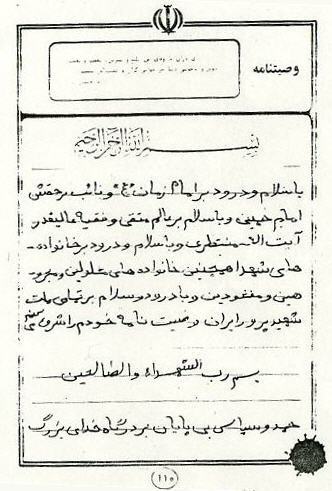 وصیتنامه
بسم الله الرحمن الرحیم
باسلام و درود بر امام زمان «عج» و نائب برحقش
امام خمینی و باسلام بر عالم متقی و فقیه عالیقدر
آیت الله منتظری و باسلام و درود بر خانواده -
های شهدا همچنین خانواده های معلولین و مجرو-
حین و مفقودین و با درود و سلام بر تمامی ملت
شهید پرور ایران وصیت نامه خودم را شروع میکنم
بسم رب الشهداء والصالحین
حمد و سپاس بی پایان بر درگاه خدای بزرگ
۱۱۰